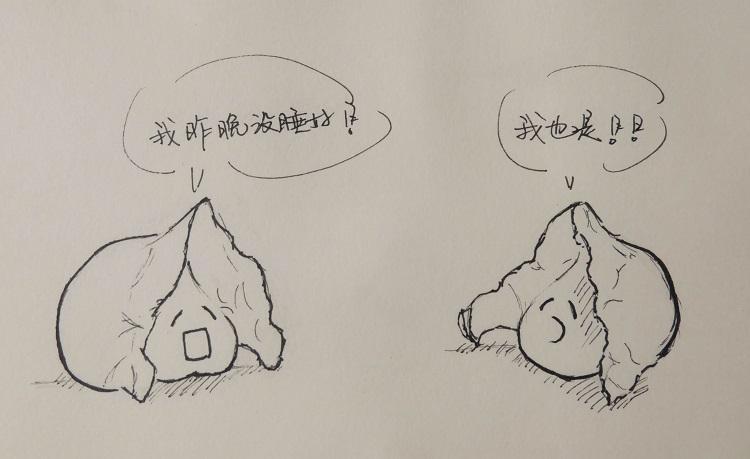 我昨晚没睡好!
我也是!!